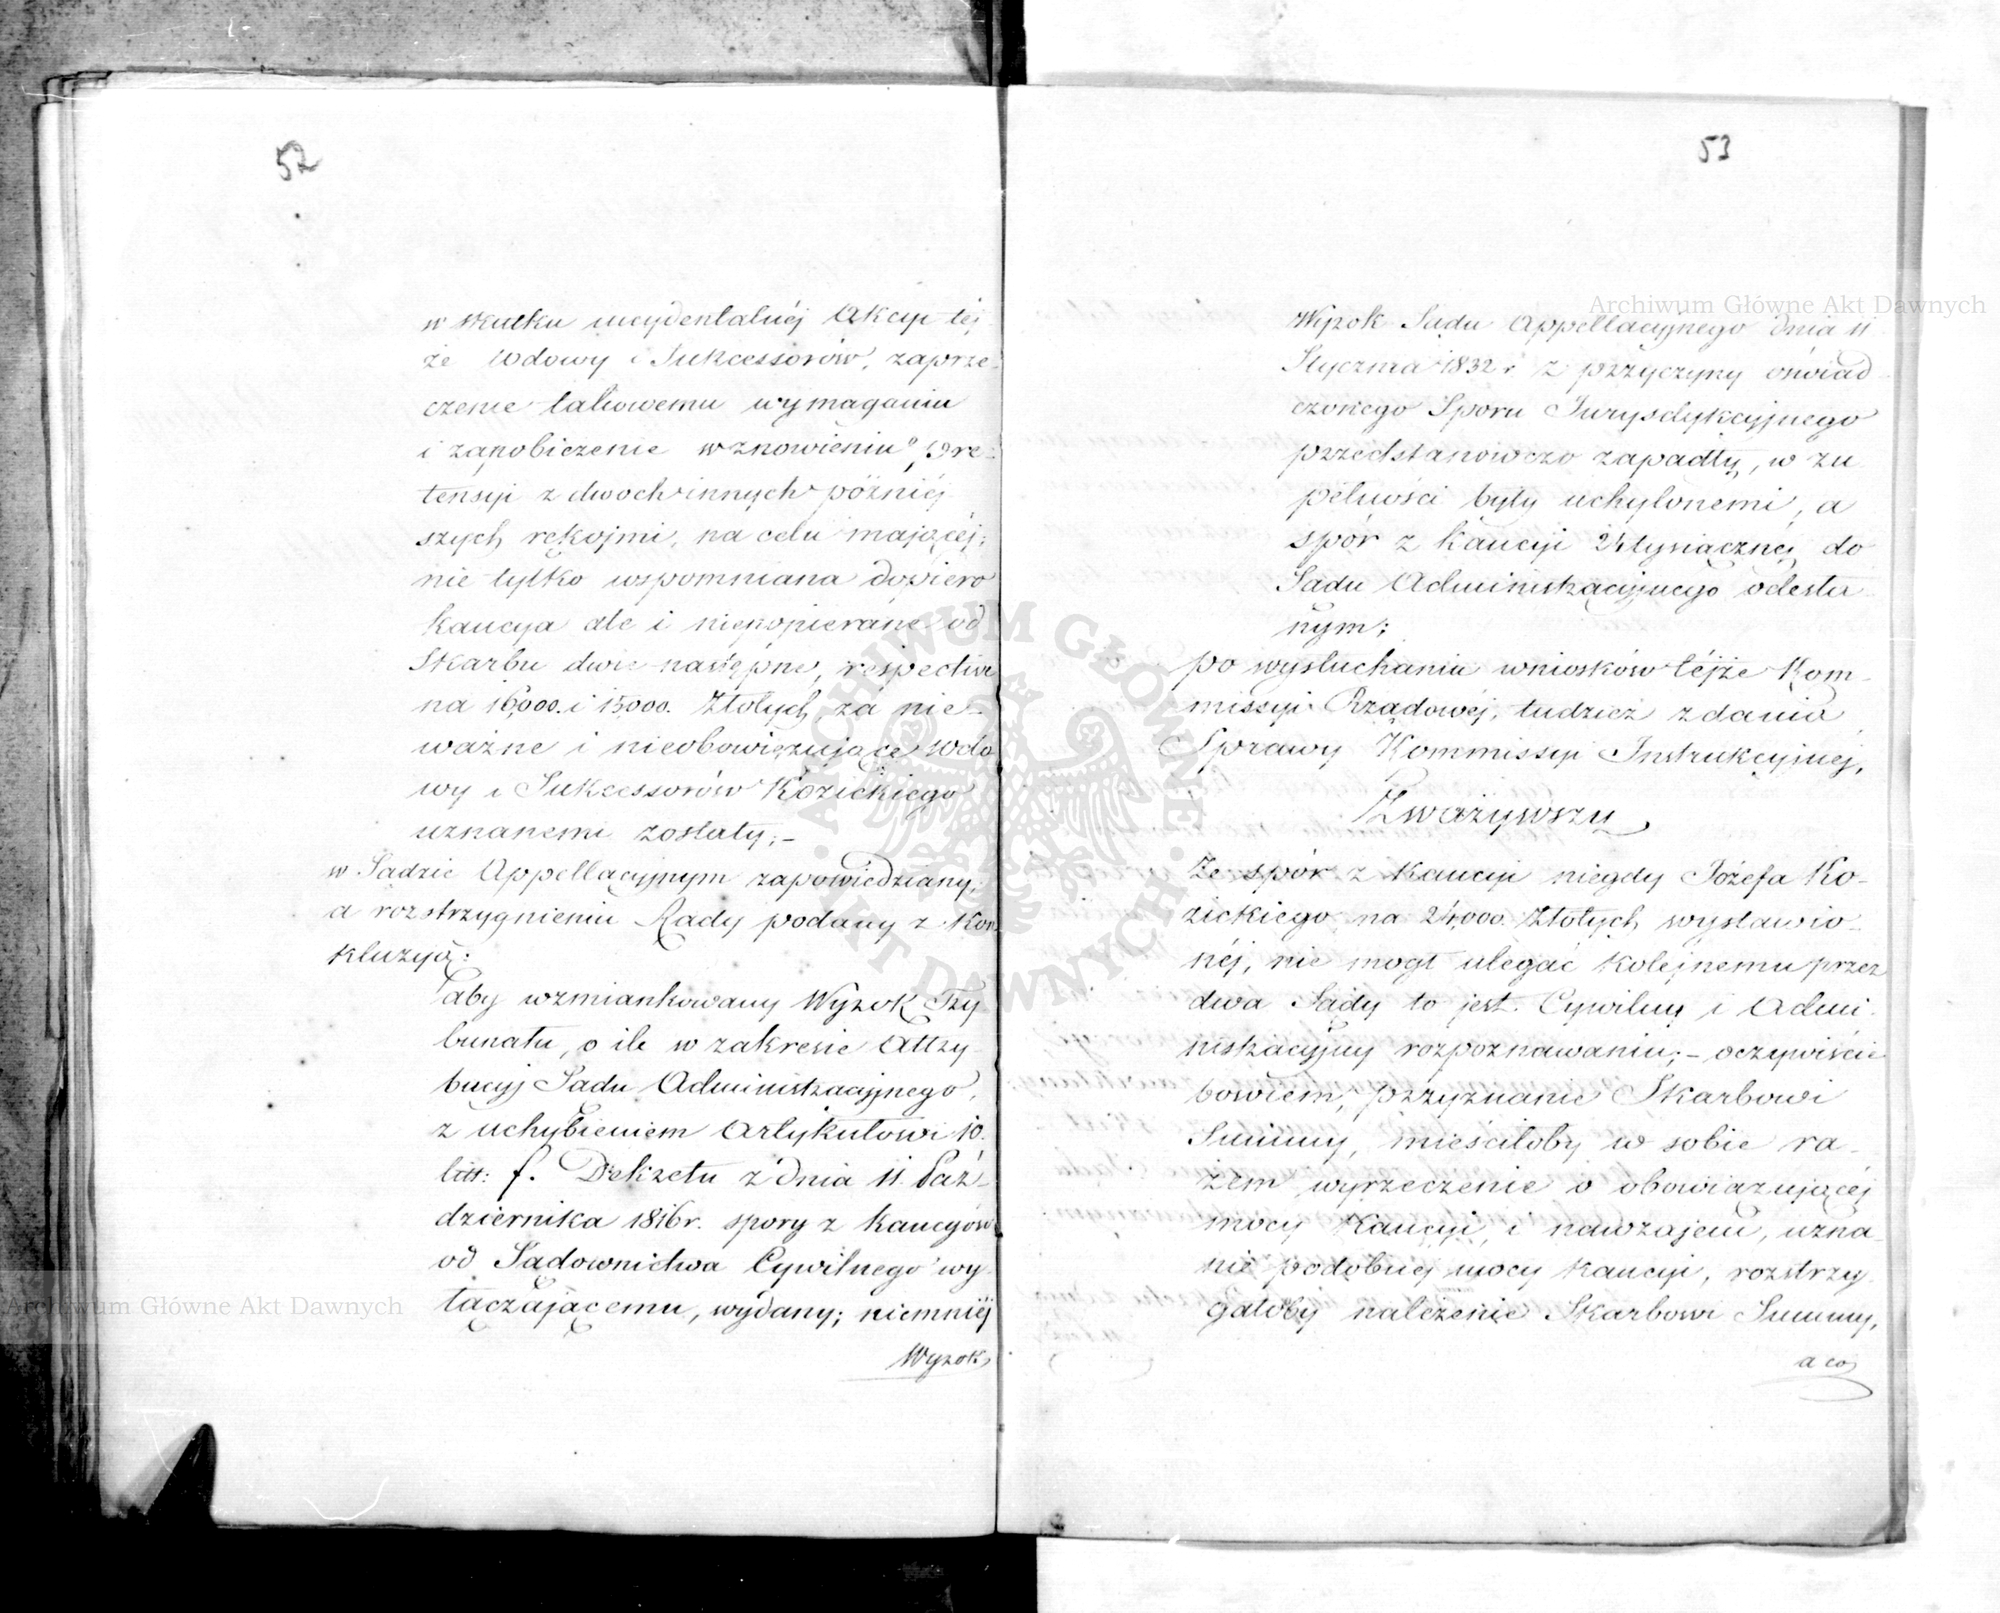 52
w skutku incydentalnéj Akcyi téj
że Wdowy i Sukcessorów, zaprze-
czenie takowemu wymaganiu
i zapobieżenie wznowieniu Pre-
tensyi z dwoch innych późniéj-
szych rękojmi, na celu mającéj;
nie tylko wspomniana dopiero
kaucya ale i niepopierane od
Skarbu dwie następne, respective
na 16,000. i 15000. Złotych, za nie-
ważne i nieobowięzujące Wdo
wy i Sukcessorów Kozickiego
uznanemi zostały; –
w Sądzie Appellacyjnym zapowiedziany,
a rozstrzygnieniu Rady podany z Kon
kluzyą:
aby wzmiankowany Wyrok Try
bunału, o ile w zakresie Attry-
bucyj Sądu Administracyjnego,
z uchybieniem Artykułowi 10.
litt: f. Dekretu z dnia 11. Paź-
dziernika 1816 r. spory z kaucyów
od Sądownictwa Cywilnego wy-
łączającemu, wydany; niemniéj
Wyrok
53
Wyrok Sądu Appellacyjnego dnia 11
Stycznia 1832 r. z przyczyny oświad-
czonego Sporu Jurysdykcyjnego
przedstanowczo zapadły, w zu
pełności były uchylonemi, a
spór z kaucyi 24tysiącznéj do
Sądu Administracyjnego odesła-
nym;
po wysłuchaniu wniosków téjże Kom-
missyi Rządowéj, tudzież zdania
Sprawy Kommissyi Instrukcyjnej,
Zważywszy
Że spór z Kaucyi niegdy Józefa Ko-
zickiego na 24,000. Złotych wystawio-
néj, nie mogł ulegać kolejnemu przez
dwa Sądy to jest. Cywilny i Admi-
nistracyjny rozpoznawaniu; – oczywiście
bowiem, przyznanie Skarbowi
Summy, mieściłoby w sobie ra-
żem wyrzeczenie o obowiązującéj
mocy Kaucyi, i nawzajem, uzna-
nie podobnéj mocy kaucyi, rozstrzy
gałoby należenie Skarbowi Summy,
a co
Archiwum Główne Akt Dawnych
Archiwum Główne Akt Dawnych
ARCHIWUM GŁÓWNE · AKT DAWNYCH ·